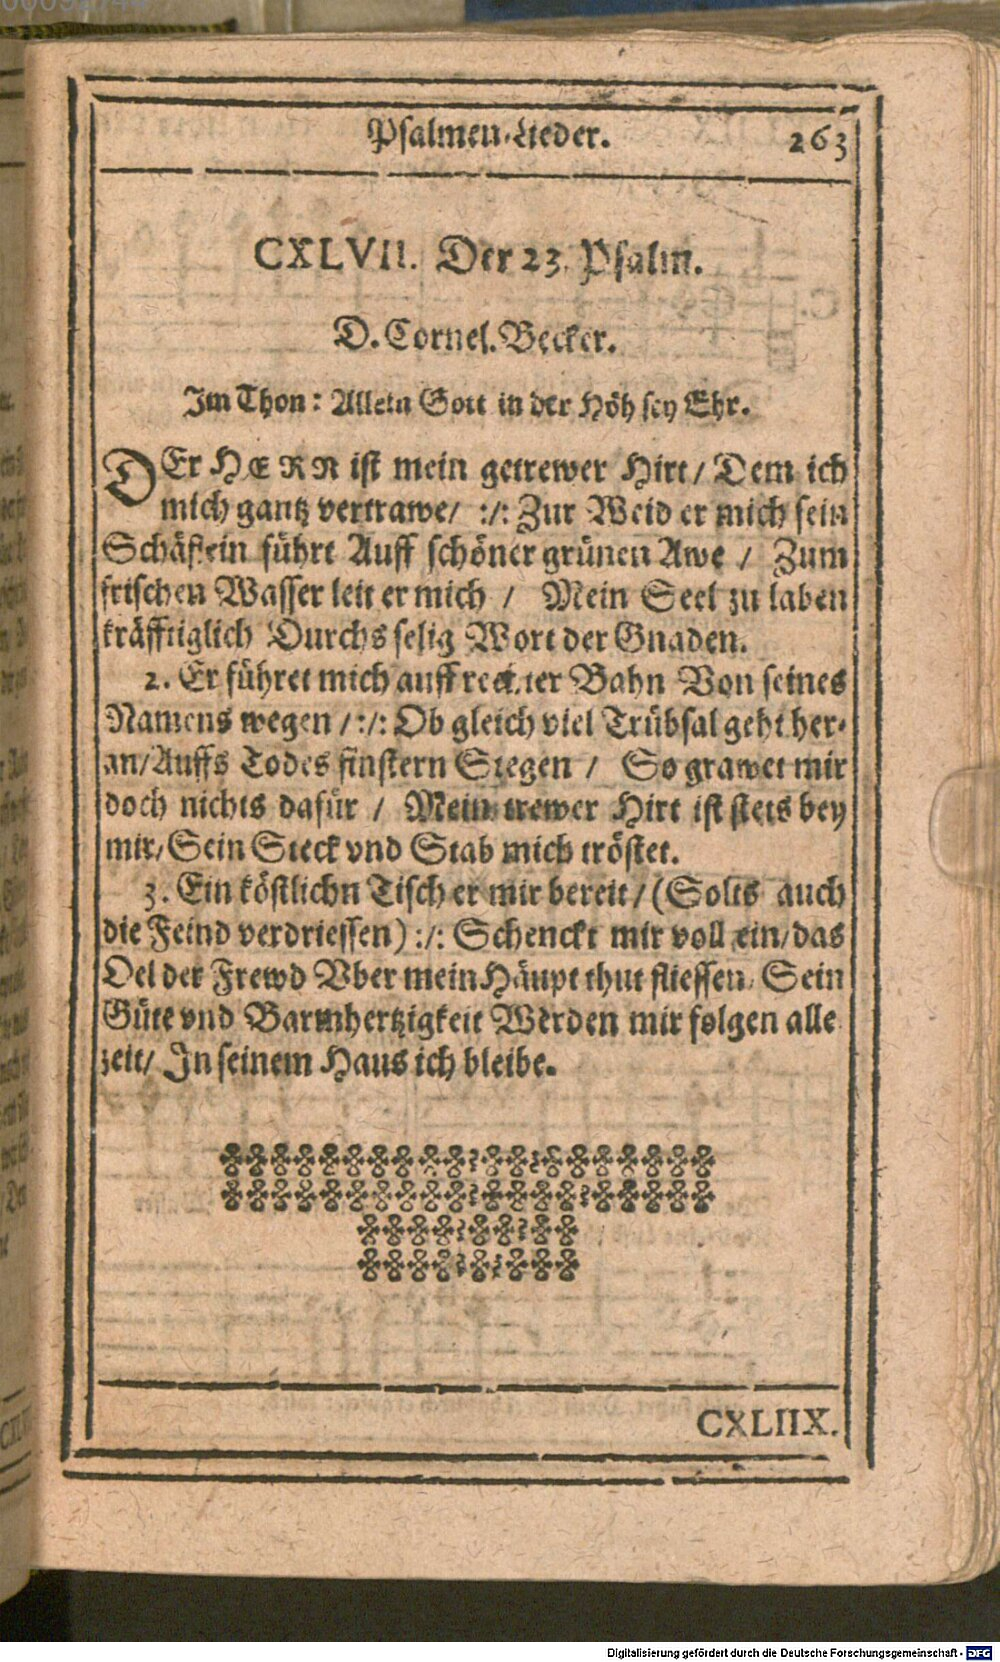 Psalmen-Lieder. 263
CXLVII. Der 23. Psalm.
D. Cornel. Becker.
Im Thon: Allein Gott in der Höh sey Ehr.
DEr HERR ist mein getrewer Hirt / Dem ich
mich gantz vertrawe / :/: Zur Weid er mich sein
Schäflein führt Auff schöner grünen Awe / Zum
frischen Wasser leit er mich / Mein Seel zu laben
kräfftiglich Durchs selig Wort der Gnaden.
2. Er führet mich auff rechter Bahn Von seines
Namens wegen / :/: Ob gleich viel Trübsal geht her-
an / Auffs Todes finstern Stegen / So grawet mir
doch nichts dafür / Mein trewer Hirt ist stets bey
mir / Sein Steck vnd Stab mich tröstet.
3. Ein köstlichn Tisch er mir bereit / (Solts auch
die Feind verdriessen) :/: Schenckt mir voll ein / das
Oel der Frewd Vber mein Häupt thut fliessen / Sein
Güte vnd Barmhertzigkeit Werden mir folgen alle
zeit / In seinem Haus ich bleibe.
CXLIIX.
Digitalisierung gefördert durch die Deutsche Forschungsgemeinschaft - DFG